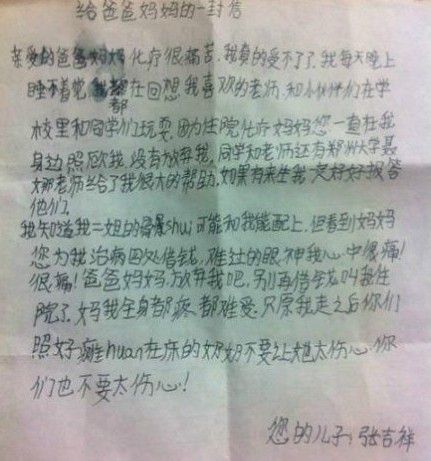 给爸爸妈妈的一封信
亲爱的爸爸妈妈化疗很痛苦,我真的受不了了,我每天晚上
睡不着觉我都在回想我喜欢的老师,和小伙伴们在学
校里和同学们玩耍,因为住院化疗妈妈您一直在我
身边照顾我,没有放弃我,同学和老师还有郑州大学聂
娜老师给了我很大的帮助,如果有来生我一定好好报答
他们。
我知道我二姐的骨shui可能和我能配上,但看到妈妈
您为我治病四处借钱,难过的眼神我心中很痛!
很痛!爸爸妈妈,放弃我吧,别再借钱叫我住
院了,妈我全身都疼,都难受,只原我走之后你们
照好瘫huan在床的奶奶不要让她太伤心,你
们也不要太伤心!
您的儿子:张吉祥